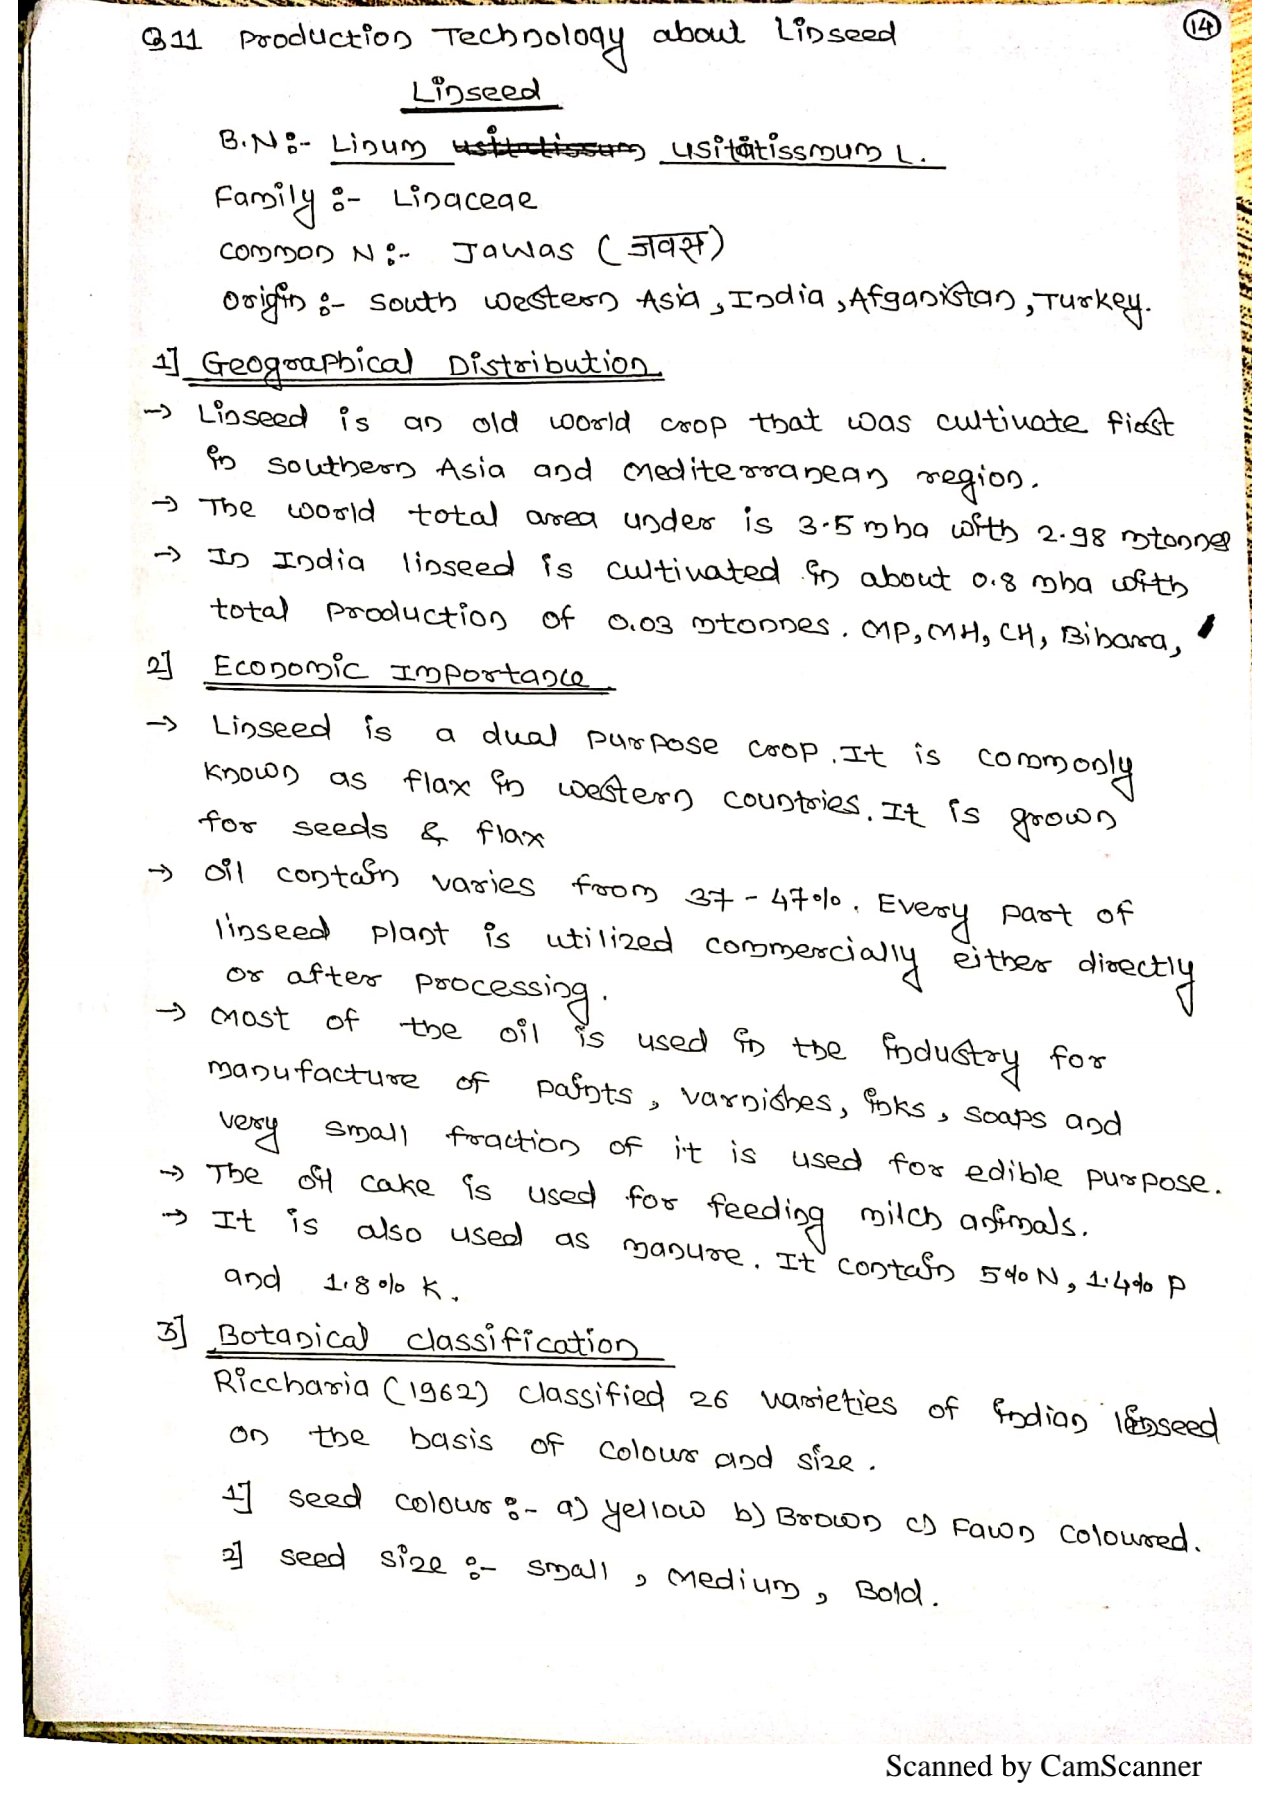 Q11 Production Technology about Linseed
14
Linseed
B.N:- Linum usitatissum usitatissmum L.
Family :- Linaceae
Common N :- Jawas (जवस)
Origin :- South western Asia, India, Afganistan, Turkey.
1] Geographical Distribution
→ Linseed is an old world crop that was cultivate first
in southern Asia and Mediterranean region.
→ The world total area under is 3.5 mha with 2.98 mtonnes
→ In India linseed is cultivated in about 0.8 mha with
total production of 0.03 mtonnes. MP, MH, CH, Bihara,
2] Economic Importance
→ Linseed is a dual purpose crop. It is commonly
known as flax in western countries. It is grown
for seeds & flax
→ Oil contain varies from 37-47%. Every part of
linseed plant is utilized commercially either directly
or after processing.
→ Most of the oil is used in the industry for
manufacture of paints, varnishes, inks, soaps and
very small fraction of it is used for edible purpose.
→ The oil cake is used for feeding milch animals.
→ It is also used as manure. It contain 5% N, 1.4% P
and 1.8% K.
3] Botanical classification
Riccharia (1962) classified 26 varieties of indian linseed
on the basis of colour and size.
1] seed colour :- a) yellow b) Brown c) Fawn coloured.
2] seed size :- small, Medium, Bold.
Scanned by CamScanner